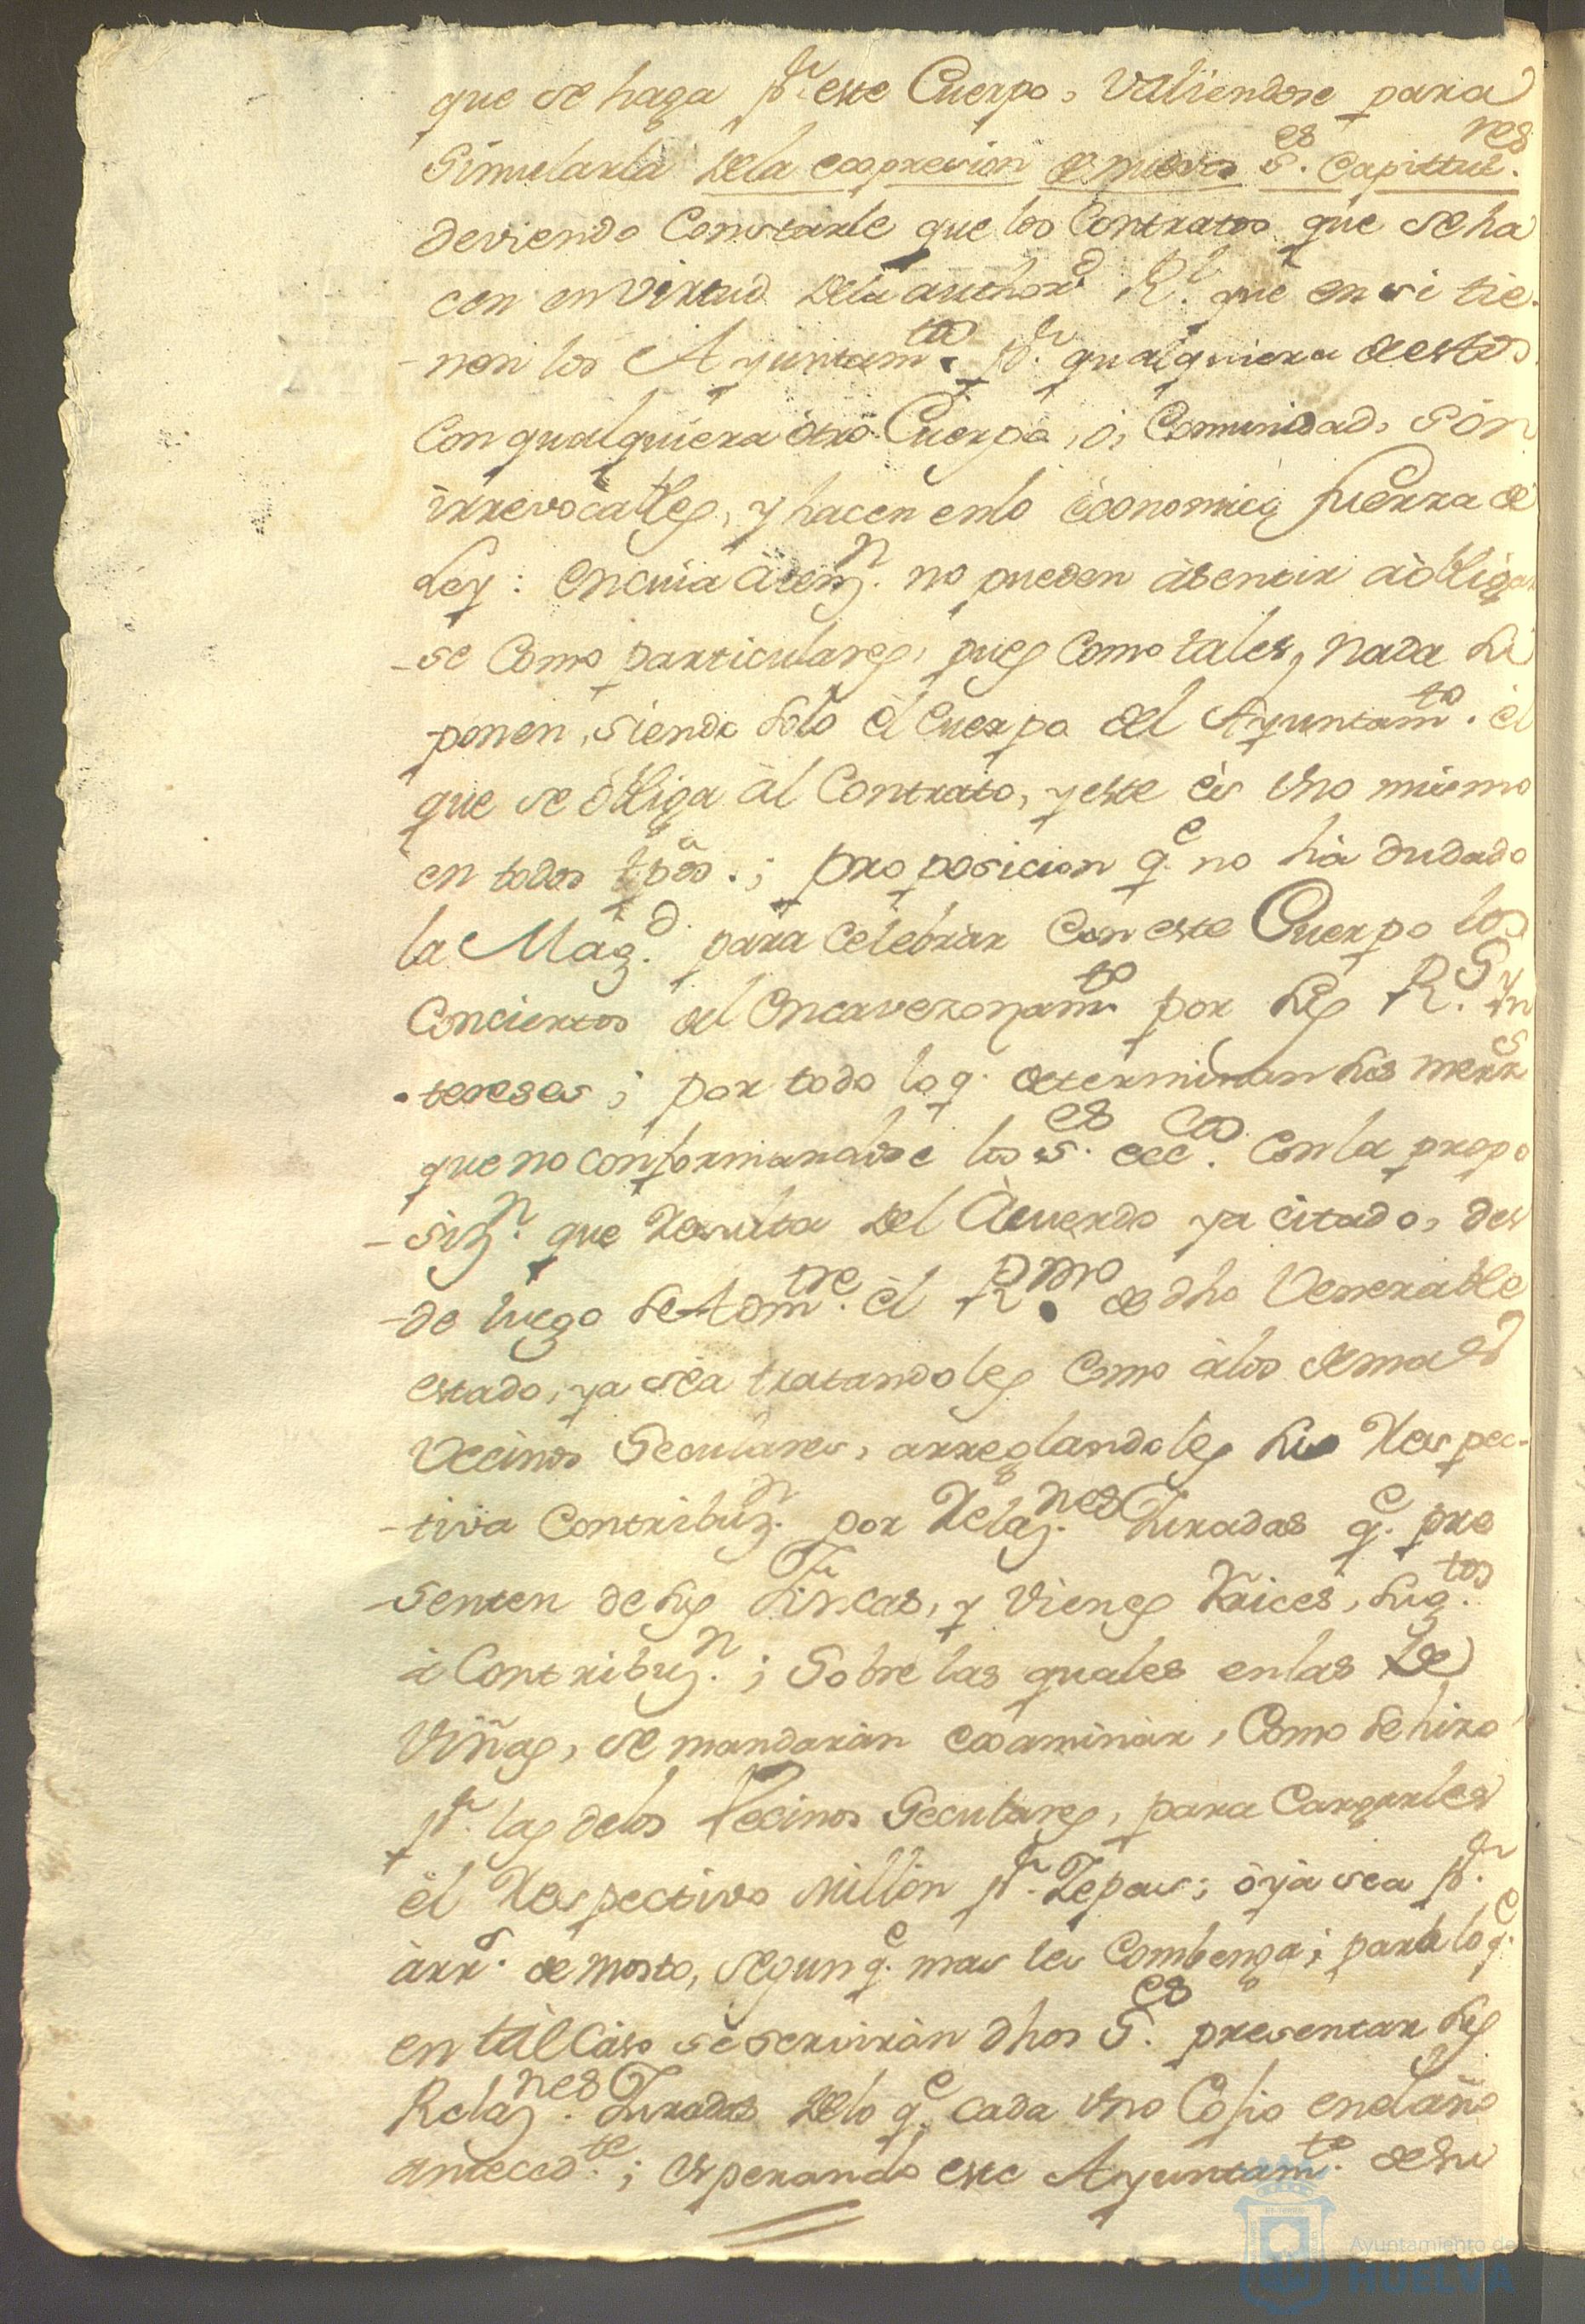 que se haga pr. este Cuerpo, Valiendose para
Simularla dela expresion de nuevos Ses. Capittures.
deviendo Constarle que los Contratos que se ha
cen en Virtud dela authord. Rl. que en si tie-
nen los Ayuntamtos. pr. qualquiera de estos
con qualquiera otro Cuerpo, o, Comunidad, son
irrevocables, y hacen en lo economico fuerza de
Ley: en cuia atenzn. no pueden asentir a obligar
-se Como particulares, pues Como tales, nada su
ponen, siendo solo el Cuerpo del Ayuntamto. el
que se obliga al Contrato, y este es uno mismo
en todos tpos.; proposicion qe. no ha dudado
la Magd. para celebrar Con este Cuerpo los
Conciertos del Encavezonamto por sus Rs. Yn
tereses; por todo lo q. determinan sus mercs
que no conformandose los Ses. eccos. Con la propo
-sizn. que Resulta del Acuerdo ya citado, des
-de luego se Admtre. el Rmo. de dho Venerable
estado, ya sea tratandoles Como a los demas
Vecinos Seculares, arreglandoles su Respec-
-tiva Contribuzn. por Relaznes. Juradas qe. pre
senten de sus Fincas, y Vienes Raices, sugtos.
a Contribuzn.; Sobre las quales en las de
Viñas, se mandaràn examinàr, Como se hizo
pr. las de los Vecinos Seculares, para Cargarles
el Respectivo Millon pr. Zepas; ò ya sea pr.
arrs. de mosto, segun qe. mas les Combenga; para lo qe.
en tal Caso se serviràn dhos Ses. presentar sus
Relaznes. Juradas de lo qe. cada uno Cojio en el año
antecedte.; esperando este Ayuntamto. de su
Ayuntamiento de
HUELVA